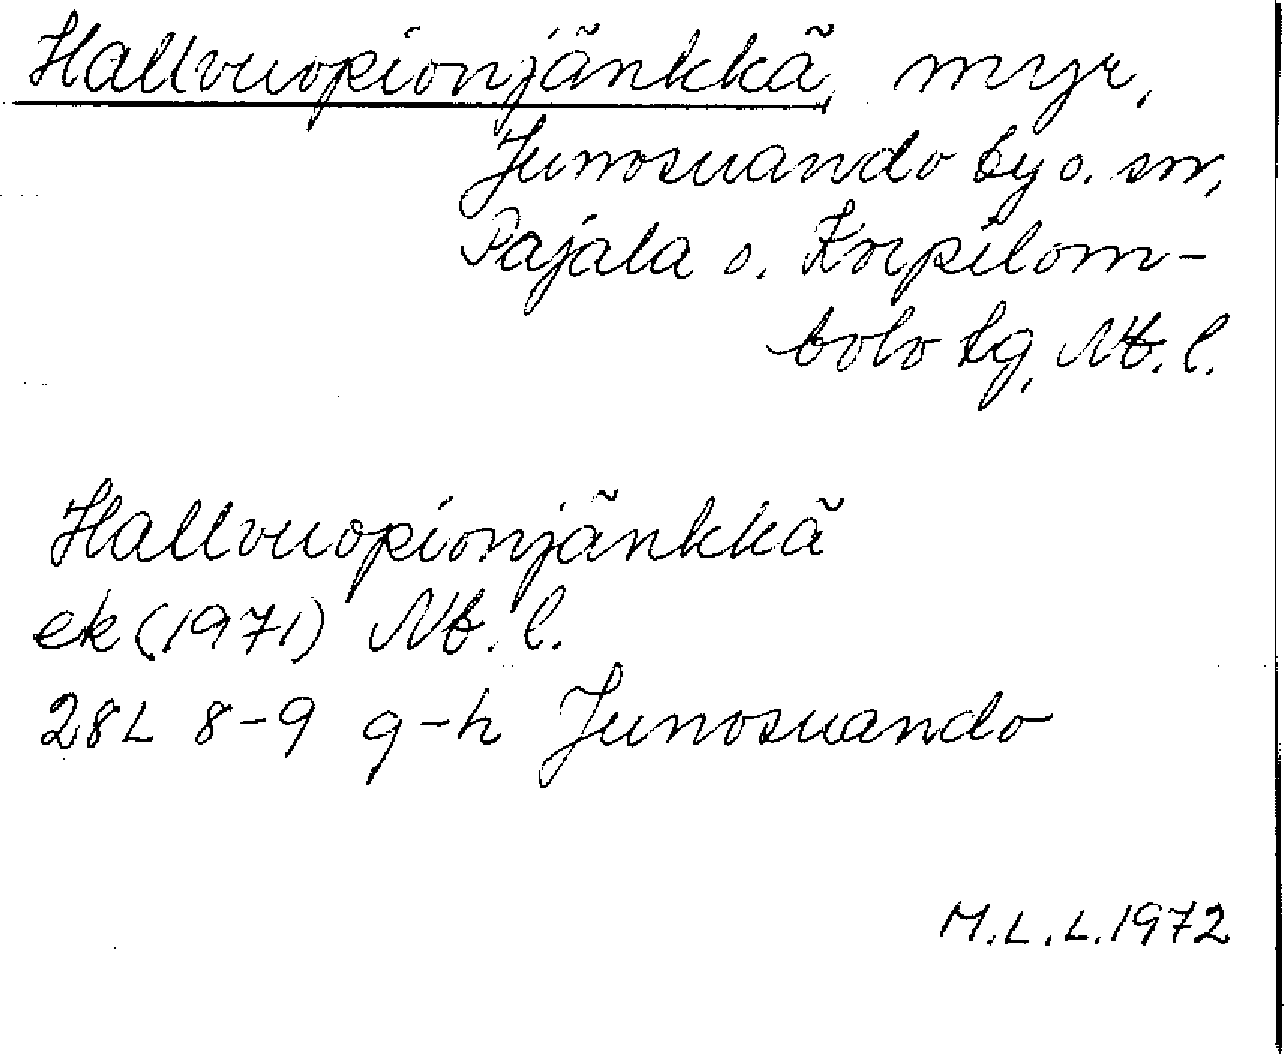 Hallvuopionjänkkä, myr,
Junosuando by o. sn,
Pajala o. Korpilom-
bolo tg, Nb. l.
Hallvuopionjänkkä
ek (1971) Nb. l.
28L 8-9 g-h Junosuando
M.L.L. 1972